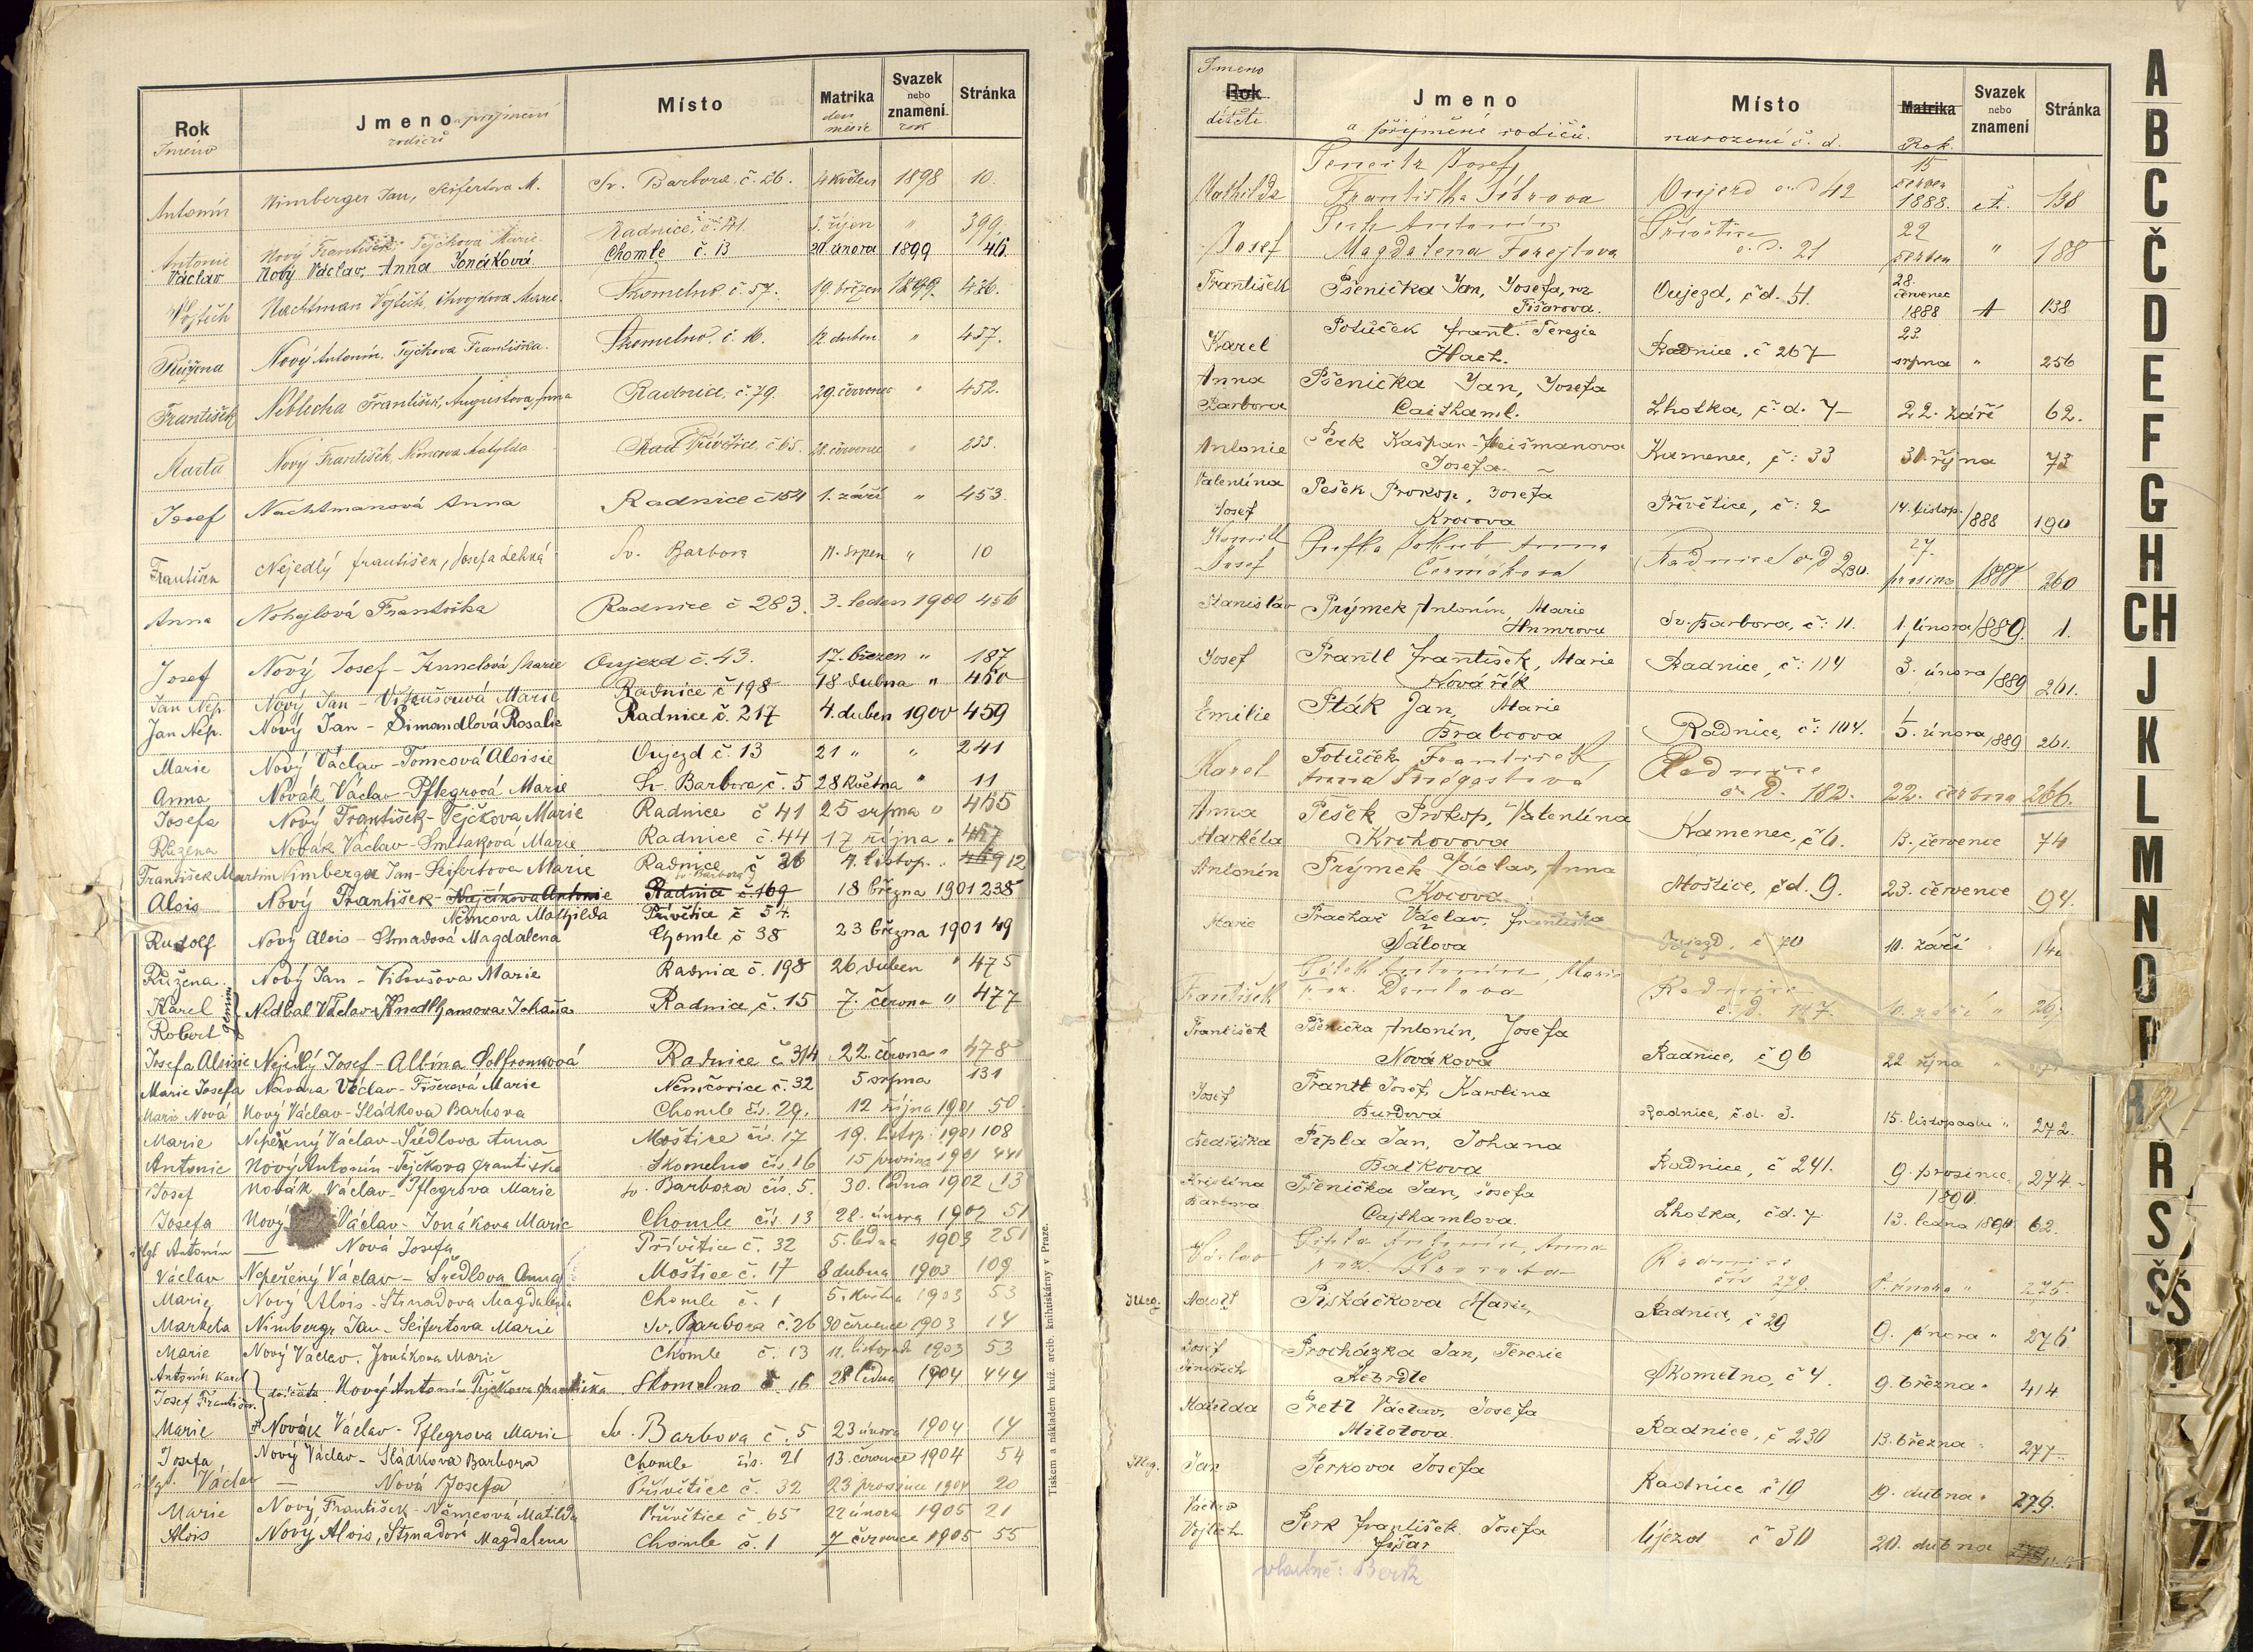 Rok Jméno
Jmeno příjmení rodičů
Místo
Matrika den měsíc
Svazek nebo znamení rok
Stránka
Antonín Nimberger Jan, Seifertova M. Sv. Barbora č. 26. 4 květen 1898 10.
Antonie Nový František, Tejčkova Marie Radnice, č. 41. 3. říjen " 399.
Václav Nový Václav, Anna Jonákova Chomle č. 13 20. února 1899 46.
Vojtěch Nachtman Vojtěch, Marie. Skomelno č. 57. 19. březen 1899. 436.
Růžena Nový Antonín. Tejčkova Františka. Skomelno. č. 16. 12. duben " 437.
František Neblecha František, Augustova Anna Radnice, č. 79. 29. červenec " 452.
Marta Nový František, Němcova Matylda Přívětice, č. 65. 28. červenec " 233.
Josef Nachtmanová Anna Radnice č 154 1. září " 453.
František Nejedlý františek, Josefa Lehká Sv. Barbora 11. srpen " 10
Anna Nohejlová Františka Radnice č 283. 3. leden 1900 456
Josef Nový Josef - Marie Oujezd č. 43. 17. březen " 187
Jan Nep. Nový Jan - Vitoušová Marie Radnice č 198 18 dubna " 460
Jan Nep. Nový Jan - Šimandlová Rosalie Radnice č. 217 4. duben 1900 459
Marie Nový Václav - Tomcová Aloisie Oujezd č. 13 21 " " 241
Anna Novák Václav - Pflegrová Marie Sv. Barbora, č. 5 28 května " 11
Josefa Nový František - Tejčkova Marie Radnice č 41 25 srpna " 465
Růžena Novák Václav - Smitaková Marie Radnice č. 44 17 října " 467
František Martin Nimberger Jan - Seifertova Marie Radnice č 26 4. listop. " 469 12
sv. Barbora
Alois Nový František - Nejčkova Antonie Radnice č 169 18 března 1901 238
Němcova Mathilda Přívětice č 54
Rudolf Nový Alois - Strnadová Magdalena Chomle č 38 23 března 1901 49
Růžena Nový Jan - Vitoušova Marie Radnice č. 198 26. duben " 475
Karel Nedbal Václav - Johana Radnice, č. 15 7. června " 477
Robert
Josefa Aloisie Nejedlý Josef - Albína Radnice č. 314 22. června " 478
Marie Josefa Návara Václav - Fišerová Marie Němčovice č. 32 5 srpna 131
Marie Nová Nový Václav - Sládkova Barbora Chomle čís. 29. 12 října 1901 50.
Marie Nepeřený Václav - Šrédlova Anna Moštice čís. 17 19. listop. 1901 108
Antonie Nový Antonín - Tejčkova Františka Skomelno čís. 16 15 prosince 1901 441
Josef Novák Václav - Pflegrova Marie Sv. Barbora čís. 5. 30. ledna 1902 13
Josefa Nový Václav - Jonákova Marie Chomle čís. 13 28. února 1902 51
illgt Antonín — Nová Josefa Přívětice č. 32 5. ledna 1903 251
Václav Nepeřený Václav - Šrédlova Anna Moštice č. 17 8 dubna 1903 109
Marie Nový Alois - Strnadova Magdalena Chomle č. 1 5. května 1903 53
Marketa Nimbergr Jan - Seifertova Marie Sv. Barbora č. 26 30 července 1903 14
Marie Nový Václav. Jonákova Marie Chomle č. 13 11. listopadu 1903 53
Antonín Karel
Josef František. dvojčata. Nový Antonín Tejčkova františka Skomelno č. 16 28 ledna 1904 444
Marie Novák Václav - Pflegrova Marie Sv. Barbora č. 5 23 února 1904 14
Josefa Nový Václav - Sládkova Barbora Chomle čís. 21 13. července 1904 54
illgt. Václav — Nová Josefa Přívětice č. 32 23 prosince 1904 20
Marie Nový František - Němcová Matilda Přívětice č. 65 22 února 1905 21
Alois Nový Alois, Strnadová Magdalena Chomle č. 1 7 července 1905 55
Tiskem a nákladem kníž. arcib. knihtiskárny v Praze.
Jmeno
Rok dítěte
Jmeno a příjmení rodičů.
Místo narození č. d.
Matrika Rok.
Svazek nebo znamení
Stránka
Josef 15
Mathilda Františka Oujezd č. d 42 červen 1888. 138
Antonín Přívětice 22
Josef Magdalena Forejtova č. D. 21 červen " 188
František Pšenička Jan, Josefa, roz Oujezd, č d. 51. 28. červenec
Fišarova. 1888 A 138
Karel Potůček frant. Terezie 23.
Hach. Radnice. č 267 srpna " 256
Anna Pšenička Jan, Josefa
Barbora Caithaml. Lhotka, č. d. 7 22. září 62.
Antonie Perk Kašpar - Heišmanova Kamenec, č: 33 31. října 73
Josefa.
Valentina Pešek Prokop, Josefa
Josef Krocova Přívětice, č: 2 14. listop. 1888 190
Josef Jakub Anna 27.
Čermákova Radnice č D 230. prosince 1888 260
Stanislav Prýmek Antonín, Marie
Sv. Barbora, č: 11. 1. února 1889. 1.
Josef Prantl františek, Marie
Kovářík Radnice, č: 114 3. února 1889 261.
Emilie Pták Jan, Marie
Brabcova Radnice, č: 104. 5. února 1889 261.
Karel Potůček František, Radnice
Anna č. D. 182. 22. června 266.
Anna Pešek Prokop, Valentina
Markéta Krohovova Kamenec, č 6. 13. července 74
Antonín Prýmek Václav, Anna
Kocova Moštice, č d. 9. 23. července 94.
Marie Prachař Václav, františka
Šálova Oujezd, č 70 10. září
Antonín, Marie Radnice
František roz. č. D. 147. 10. září "
František Pšenička Antonín, Josefa
Nováková Radnice, č 96 22 října "
Josef Prantl Josef, Karolina
Burdová Radnice, č. d. 3. 15. listopadu " 272.
Bedřiška Pipla Jan, Johana
Bačkova Radnice, č 241. 9. prosince 274
Kristina Pšenička Jan, Josefa 1890
Barbora Cajthamlova. Lhotka, čd. 7 13. ledna 1890 62.
Václav Antonín, Anna Radnice
roz. čís 279. února " 275.
Illeg. Adolf Piskáčkova Marie, Radnice, č 29 9. února " 276
Josef Procházka Jan, Terezie
Jindřich Kebrdle Skomelno, č 4. 9. března " 414
Matilda Pretl Václav, Josefa
Mitotova. Radnice, č 230 13. března " 277
Illeg. Jan Perkova Josefa Radnice č 19 19. dubna " 279.
Václav Perk františek Josefa
Vojtěch Fišar Újezd č 30 20. dubna
vlastně: Berk
A
B
C
Č
D
E
F
G
H
CH
J
K
L
M
N
O
P
R
R
S
Š
Š
T